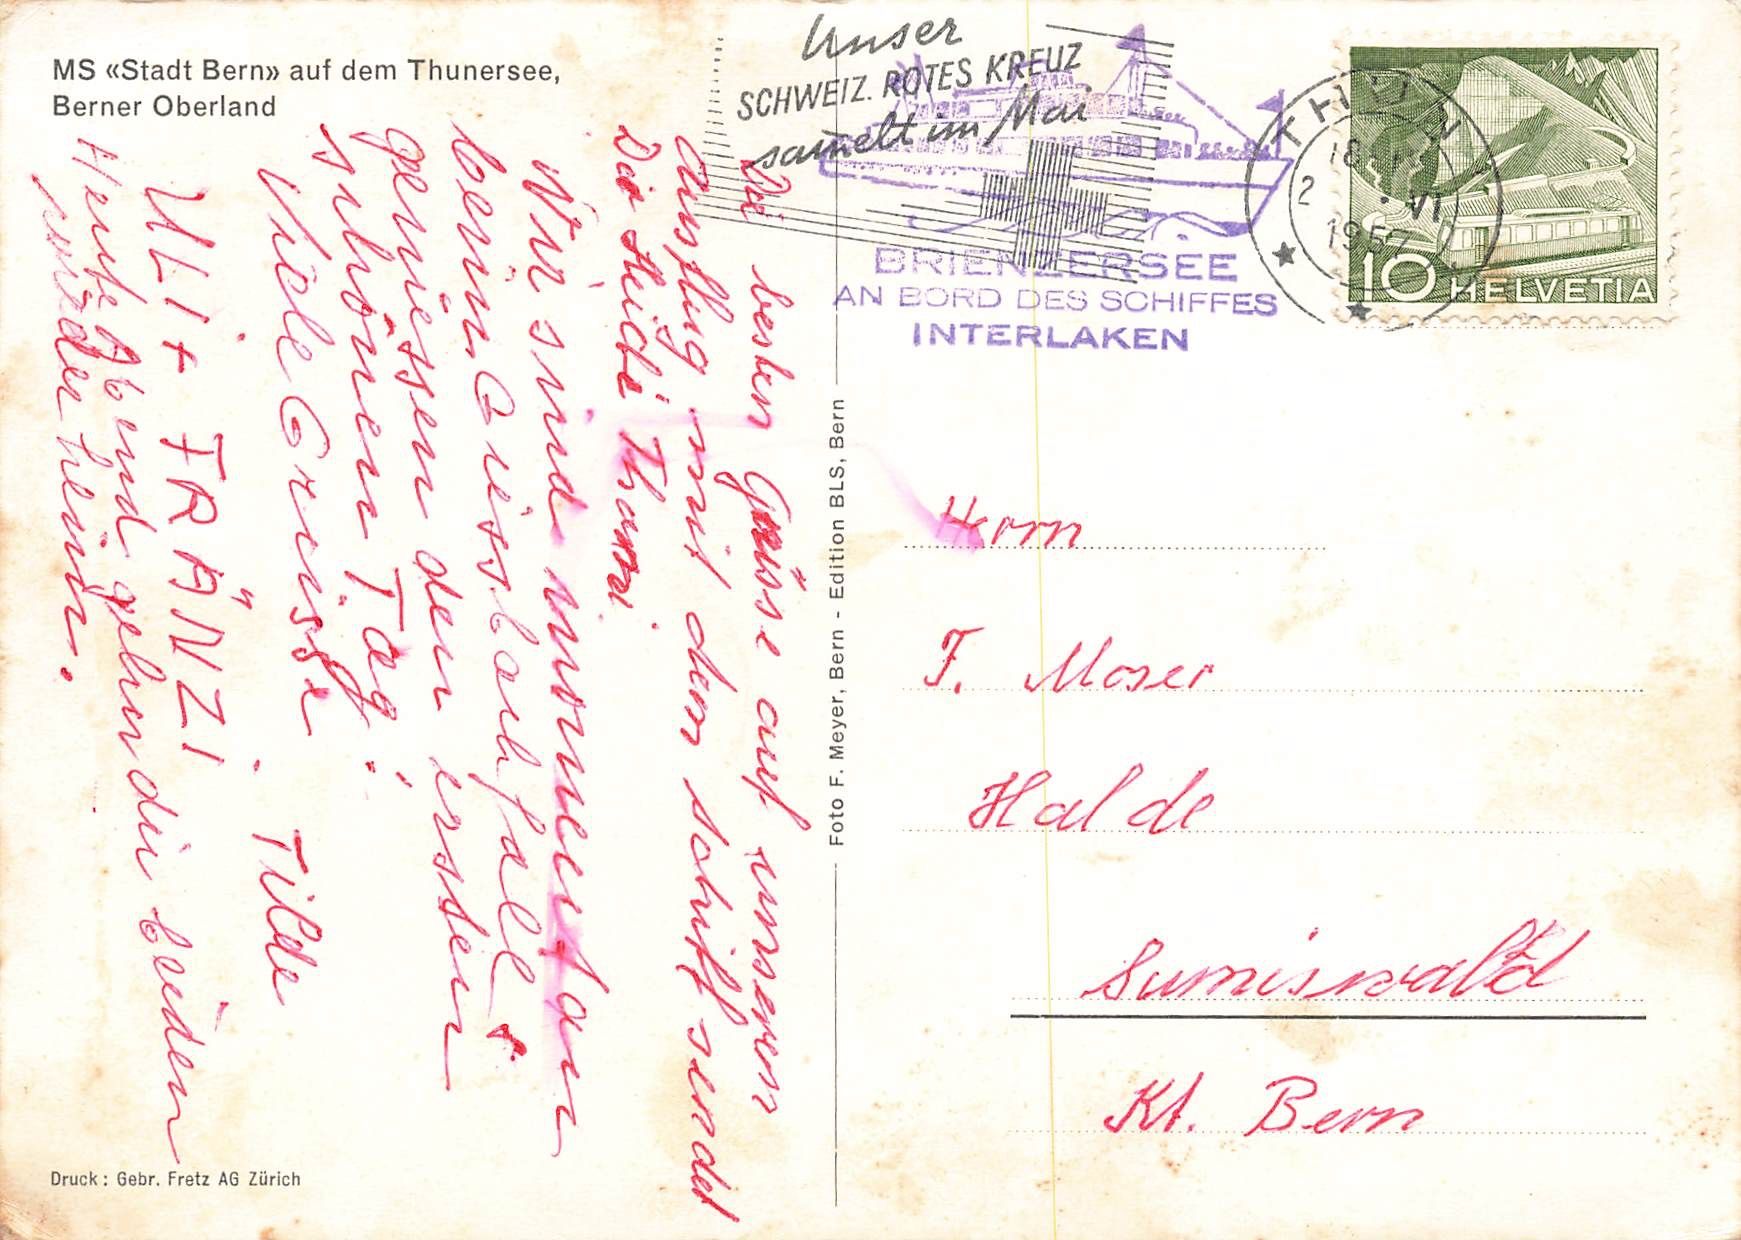 MS «Stadt Bern» auf dem Thunersee,
Berner Oberland
Unser
SCHWEIZ. ROTES KREUZ
samelt im Mai
BRIENZERSEE
AN BORD DES SCHIFFES
INTERLAKEN
THUN
18
2 VI
1957
10 HELVETIA
Die besten Grüsse auf unseren
Ausflug mit dem schiff sendet
Dir Heidi
Wir sind momentan
beim Giessbachfall
geniessen den ersten
schönen Tag!
Viele Grüsse. Tilde
ULI + FRÄNZI
Heute Abend gehen die beiden
wieder heim.
Foto F. Meyer, Bern - Edition BLS, Bern
Herrn
F. Moser
Halde
Sumiswald
Kt. Bern
Druck: Gebr. Fretz AG Zürich